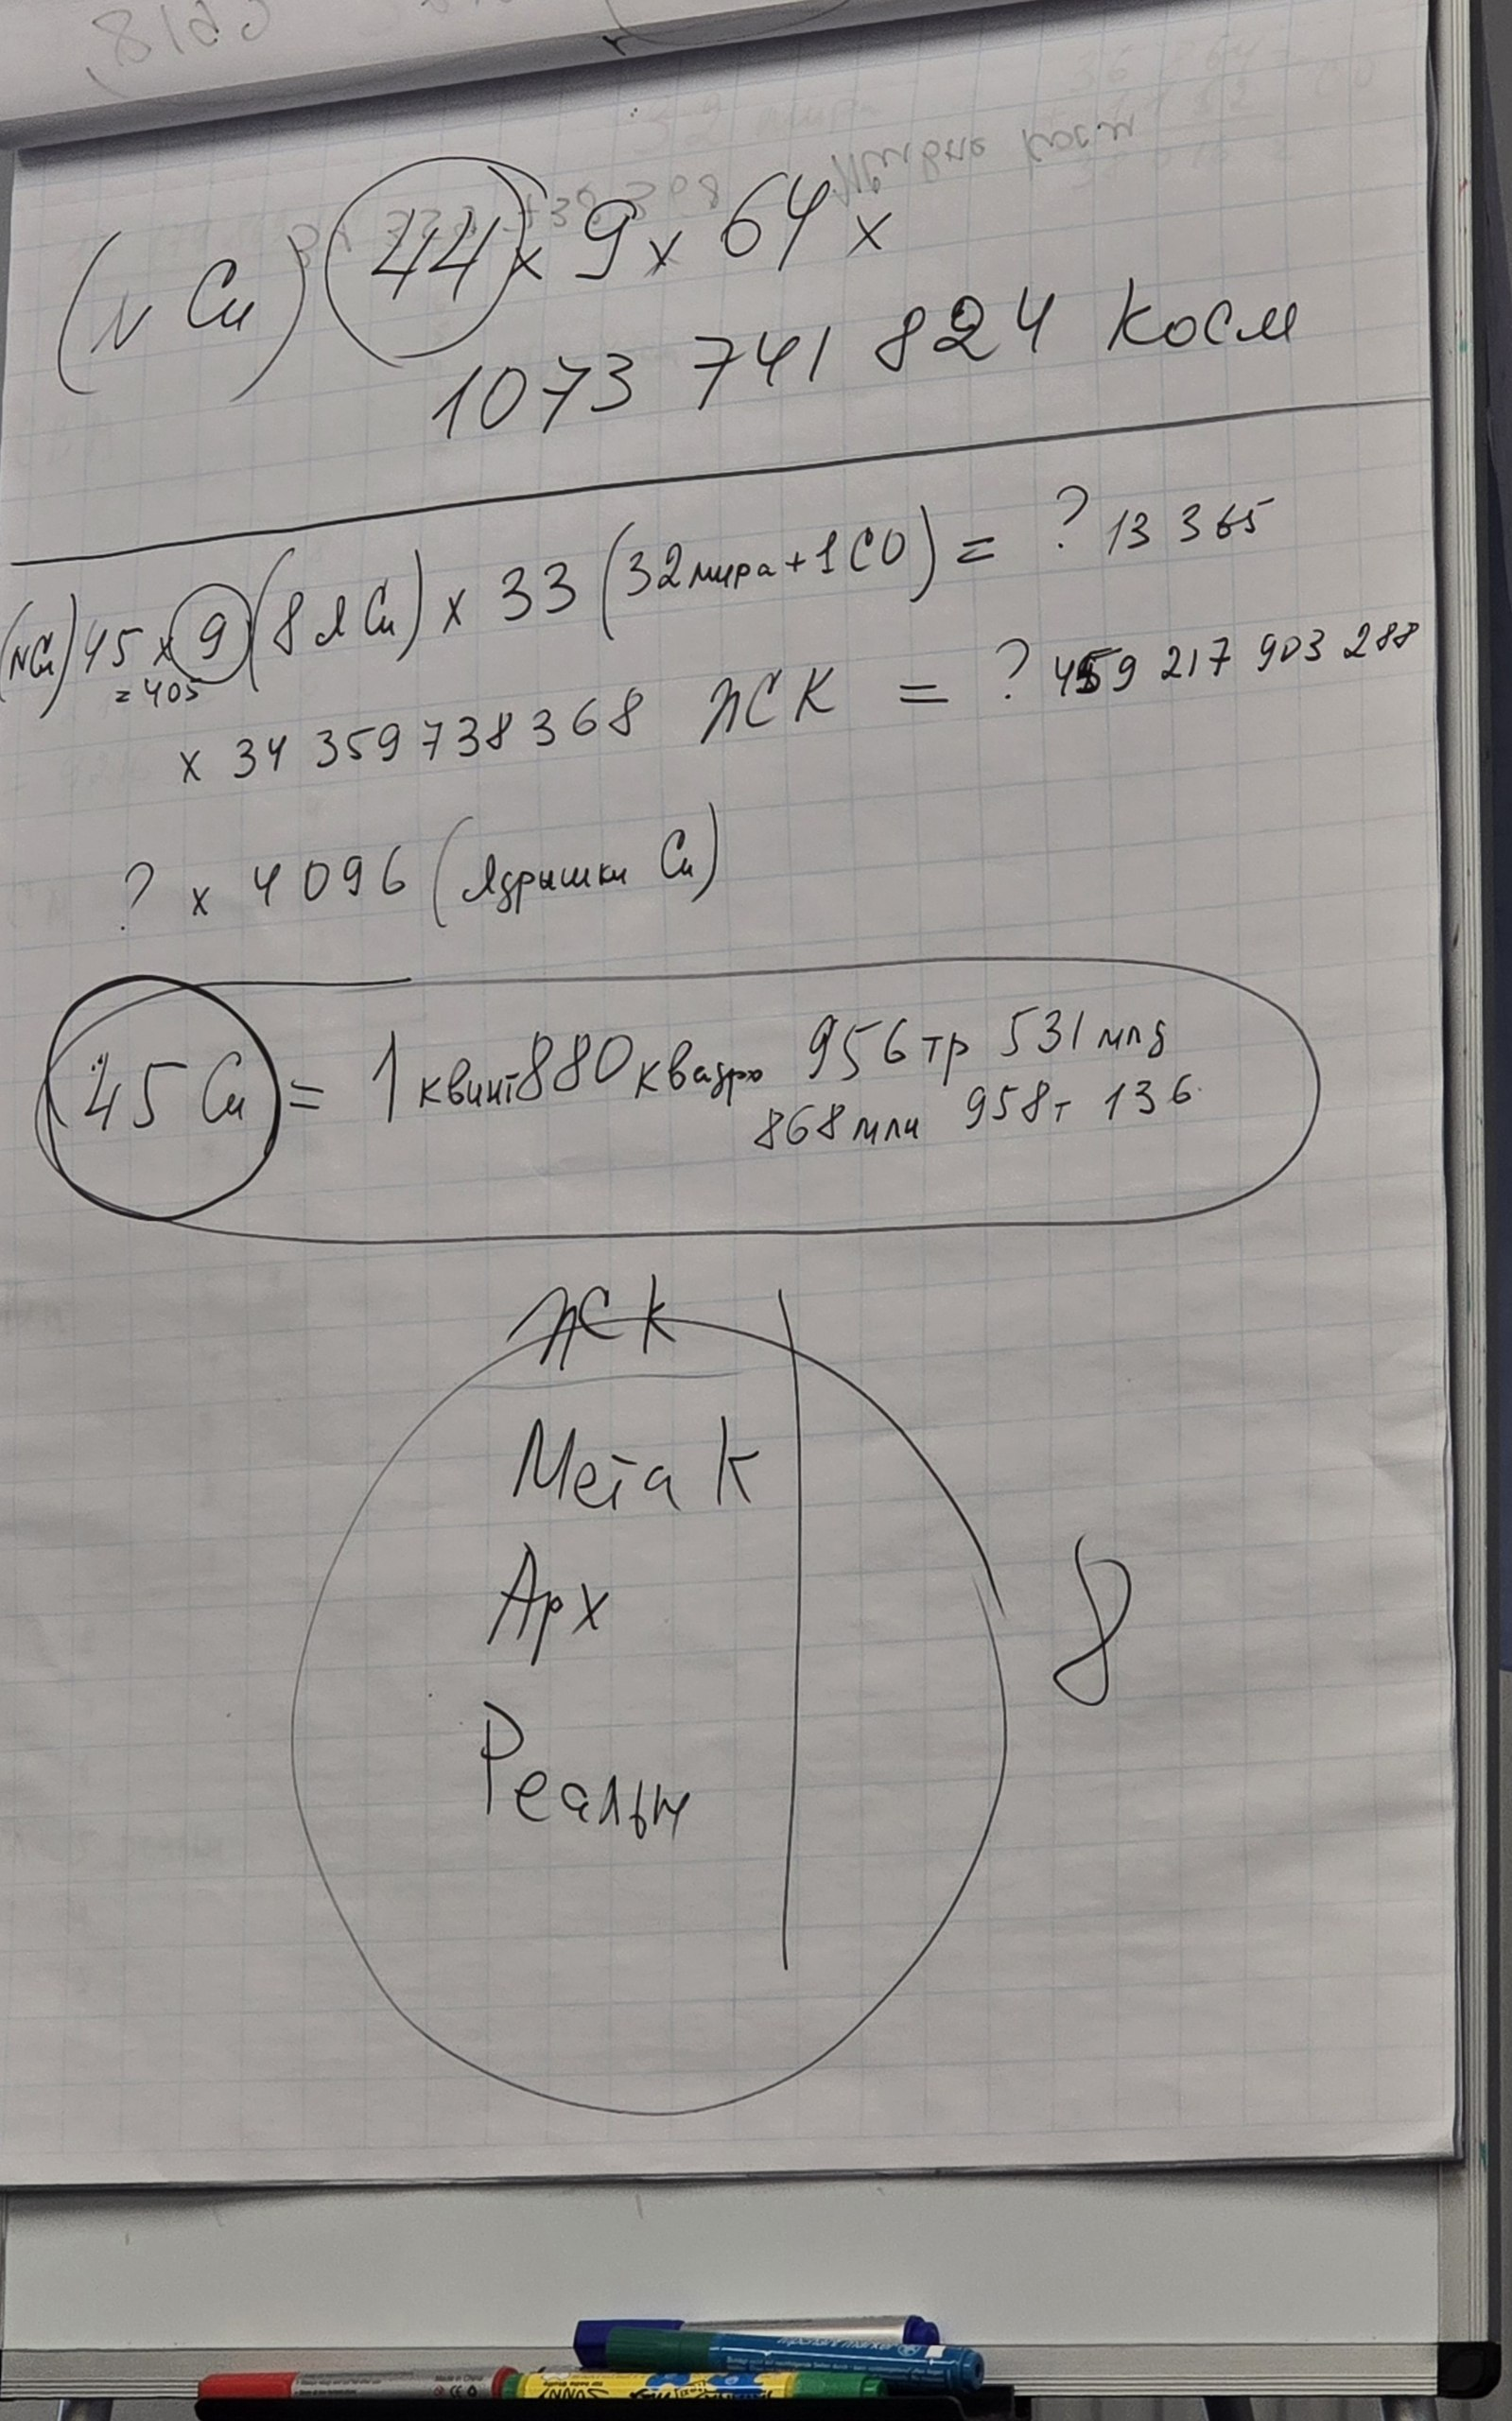 (N Си) 44 x 9 x 64 x
1073 741 824 косм
(NСи) 45 x 9 (8 Я Си) x 33 (32 мира + 1 СО) = ? 13 365
= 405
x 34 359 738 368 ЖК = ? 459 217 903 288
? x 4096 (Ядрышки Си)
45 Си = 1 квинт 880 квадро 956 тр 531 млд
868 млн 958 т 136
ЖК
Мега К
Арх
Реальн
8